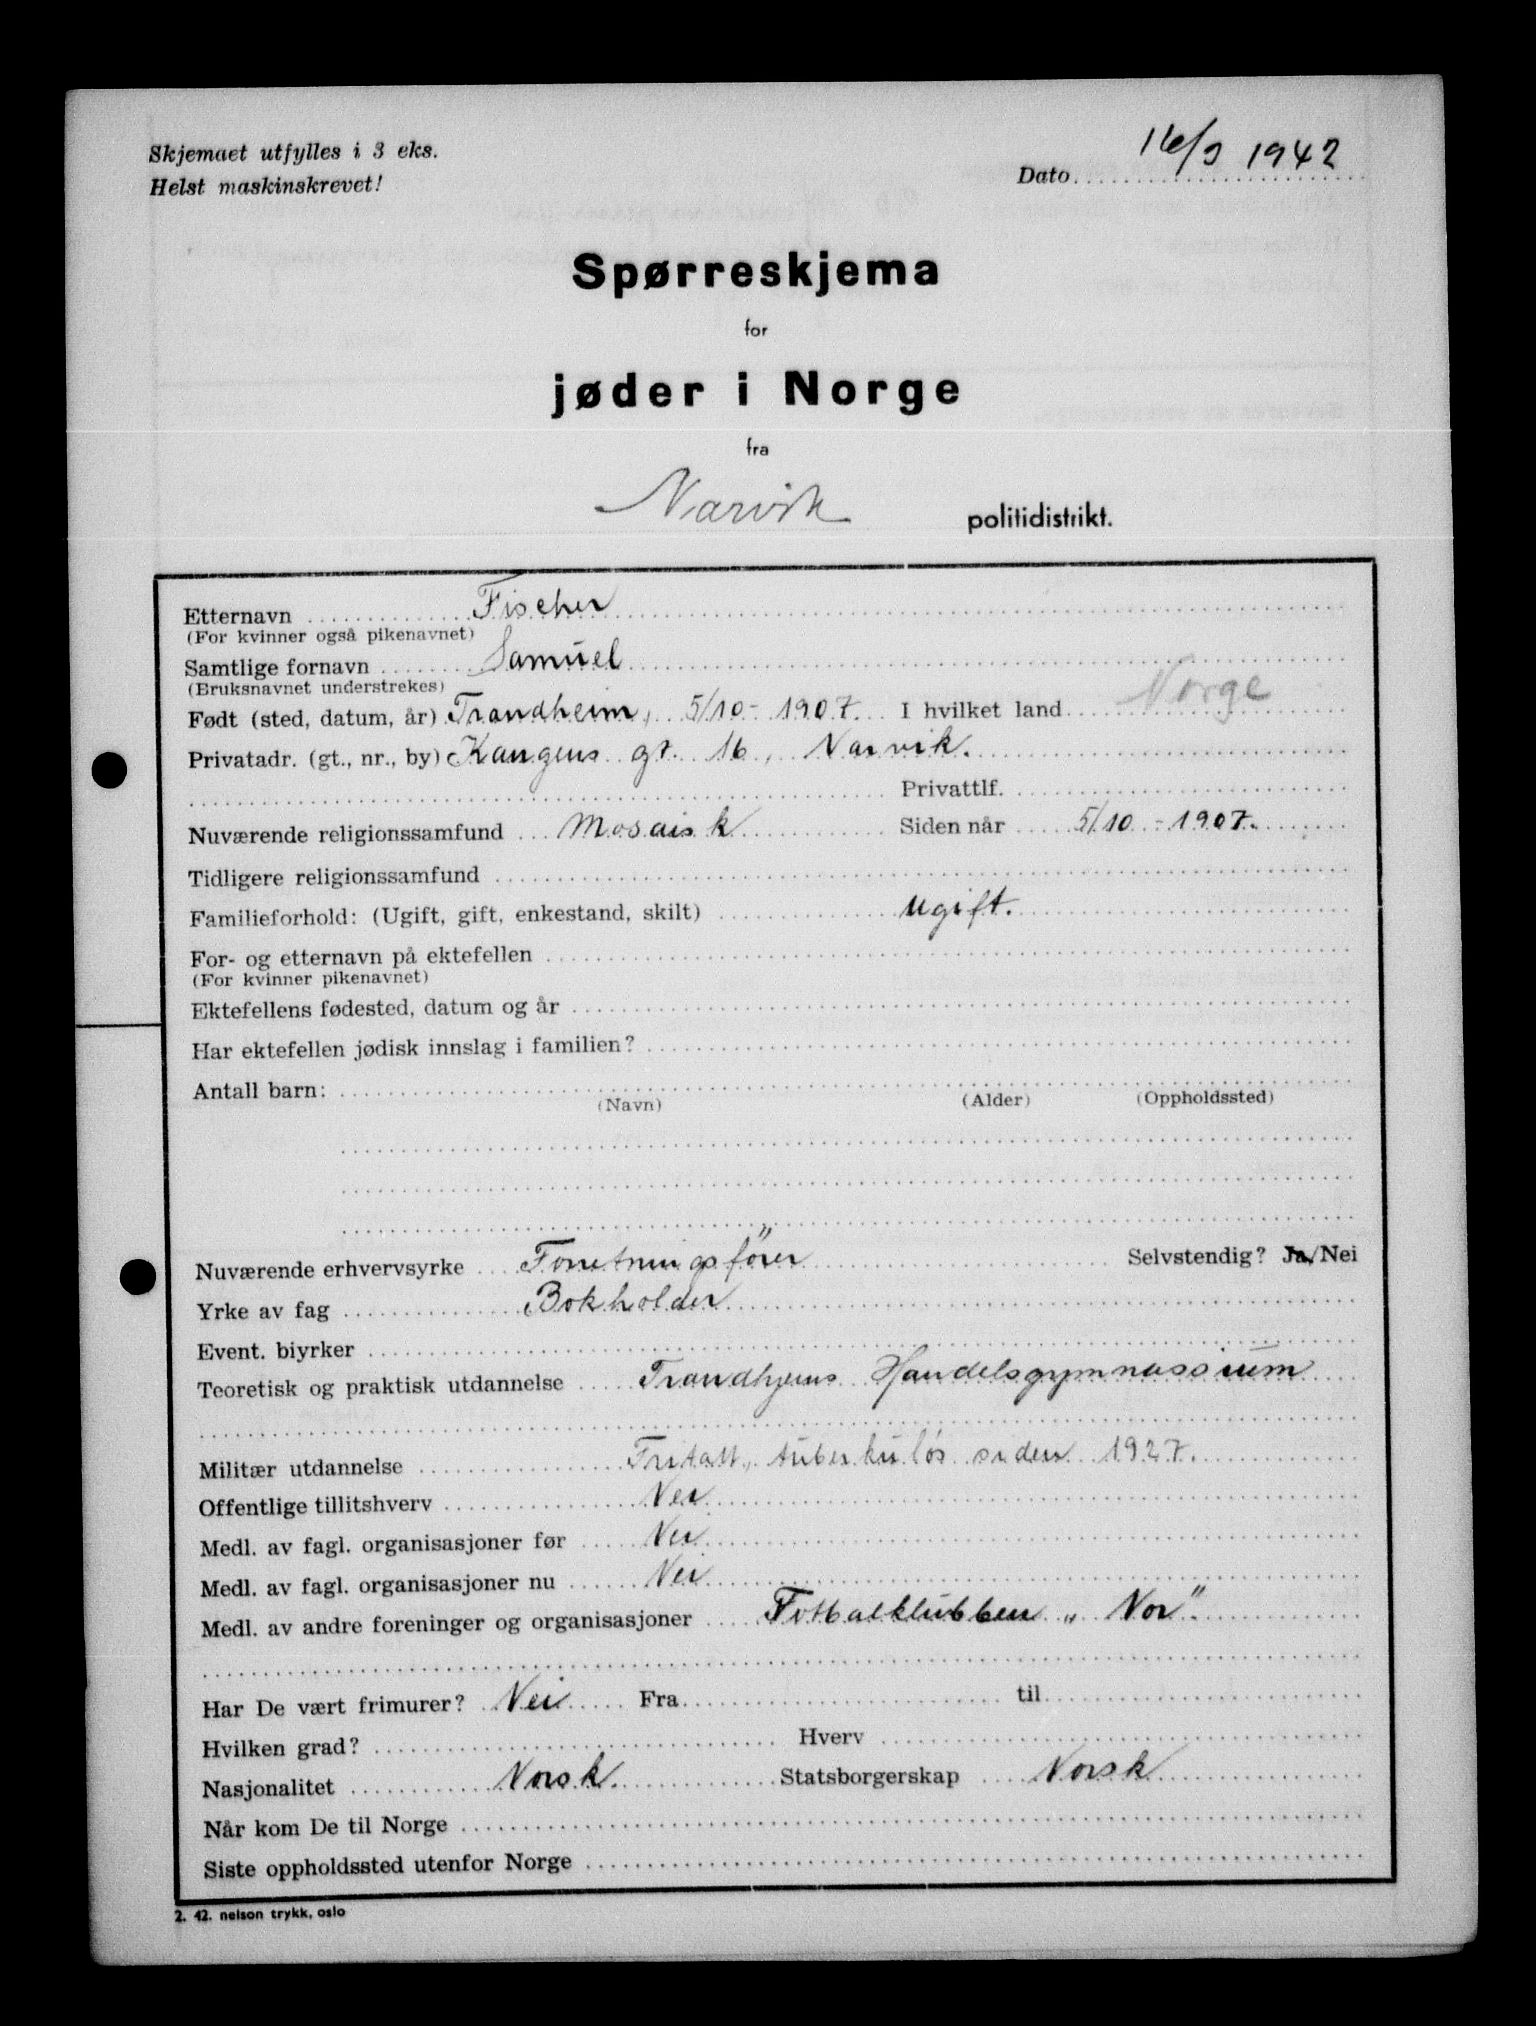 Skjemaet utfylles i 3 eks.
Helst maskinskrevet!
Dato 16/3 1942
Spørreskjema
for
jøder i Norge
fra
Narvik politidistrikt.
Etternavn Fischer
(For kvinner også pikenavnet)
Samtlige fornavn Samuel
(Bruksnavnet understrekes)
Født (sted, datum, år) Trondheim, 5/10 - 1907. I hvilket land Norge
Privatadr. (gt., nr., by) Kongens gt. 16, Narvik.
Privattlf.
Nuværende religionssamfund Mosaisk Siden når 5/10 - 1907.
Tidligere religionssamfund
Familieforhold: (Ugift, gift, enkestand, skilt) ugift.
For- og etternavn på ektefellen
(For kvinner pikenavnet)
Ektefellens fødested, datum og år
Har ektefellen jødisk innslag i familien?
Antall barn:
(Navn) (Alder) (Oppholdssted)
Nuværende erhvervsyrke Forretningsfører Selvstendig? Ja/Nei
Yrke av fag Bokholder
Event. biyrker
Teoretisk og praktisk utdannelse Trondhjems Handelsgymnassium
Militær utdannelse Fritatt, tuberkuløs siden 1927.
Offentlige tillitshverv Nei
Medl. av fagl. organisasjoner før Nei
Medl. av fagl. organisasjoner nu Nei
Medl. av andre foreninger og organisasjoner Fotbalklubben „ Nor"
Har De vært frimurer? Nei Fra til
Hvilken grad? Hverv
Nasjonalitet Norsk. Statsborgerskap Norsk
Når kom De til Norge
Siste oppholdssted utenfor Norge
2. 42. nelson trykk, oslo